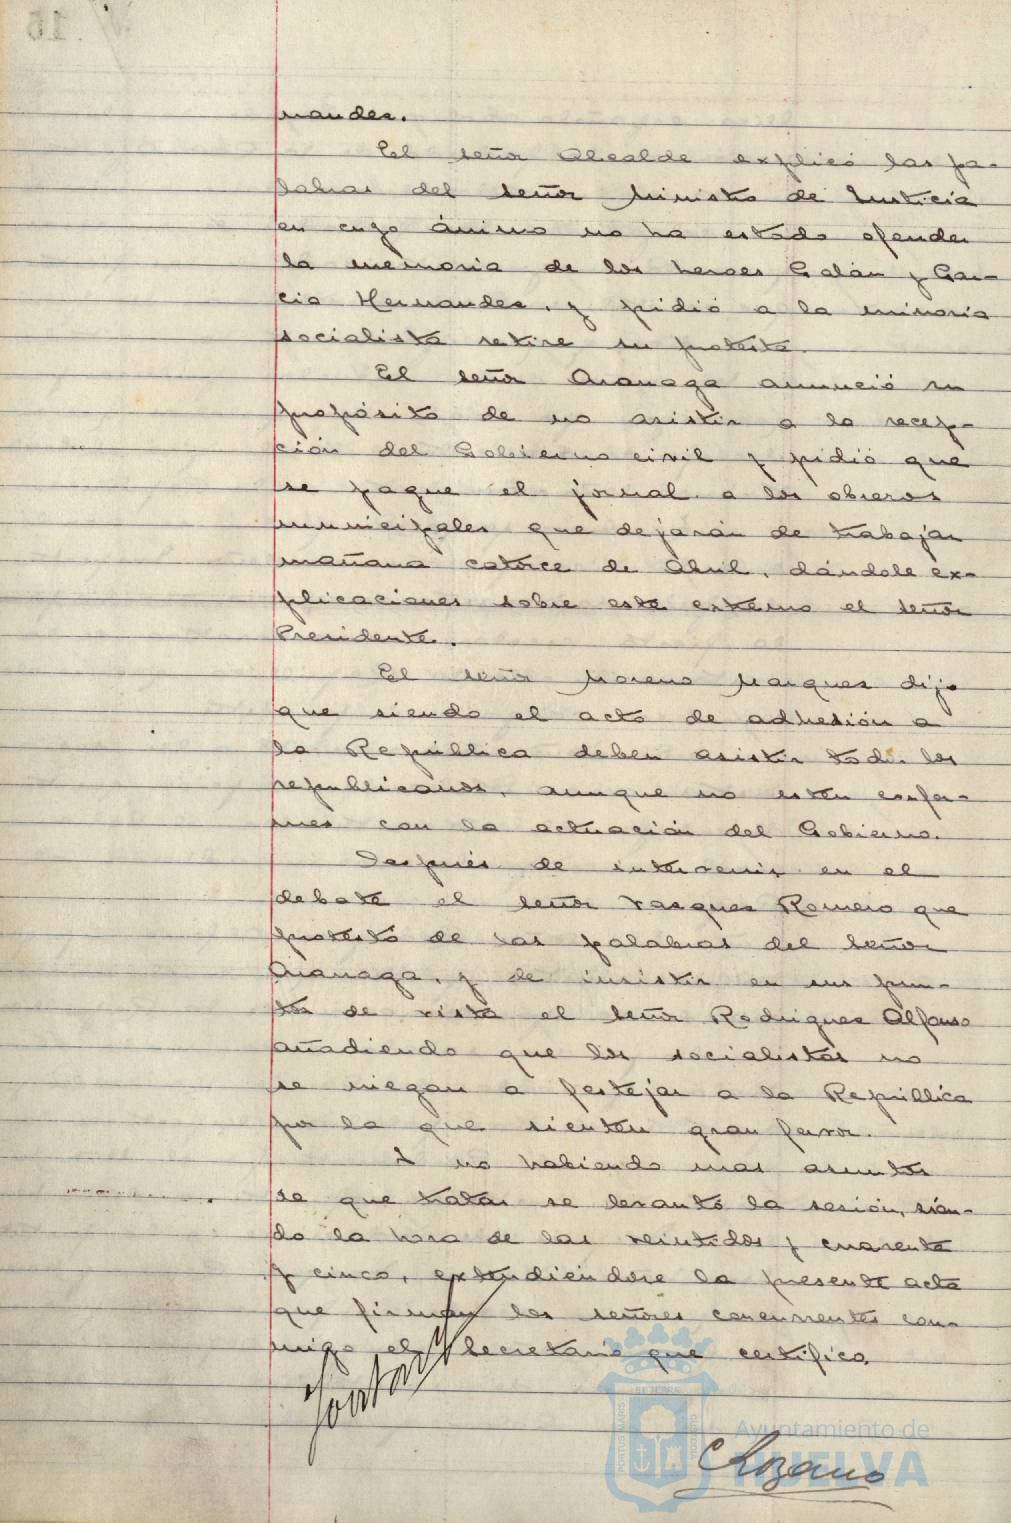 nandez.
El señor Alcalde explicó las pa-
labras del señor Ministro de Justicia
en cuyo ánimo no ha estado ofender
la memoria de los heroes Galán y Gar-
cia Hernandez, y pidió a la minoria
socialista retire su protesta.
El señor Aranaga anunció su
propósito de no asistir a la recep-
ción del Gobierno civil y pidió que
se pague el jornal a los obreros
municipales que dejarán de trabajar
mañana catorce de Abril, dándole ex-
plicaciones sobre este extremo el señor
Presidente.
El señor Moreno Marquez dijo
que siendo el acto de adhesión a
la República deben asistir todos los
republicanos, aunque no esten confor-
mes con la actuación del Gobierno.
Después de intervenir en el
debate el señor Vazquez Romero que
protestó de las palabras del señor
Aranaga, y de insistir en sus pun-
tos de vista el señor Rodriguez Alfonso
añadiendo que los socialistas no
se niegan a festejar a la República
por la que sienten gran fervor.
Y no habiendo mas asuntos
de que tratar se levantó la sesión, sien-
do la hora de las veintidos y cuarenta
y cinco, extendiéndose la presente acta
que firman los señores concurrentes con-
migo el Secretario que certifico.
Ayuntamiento de
HUELVA
Lozano